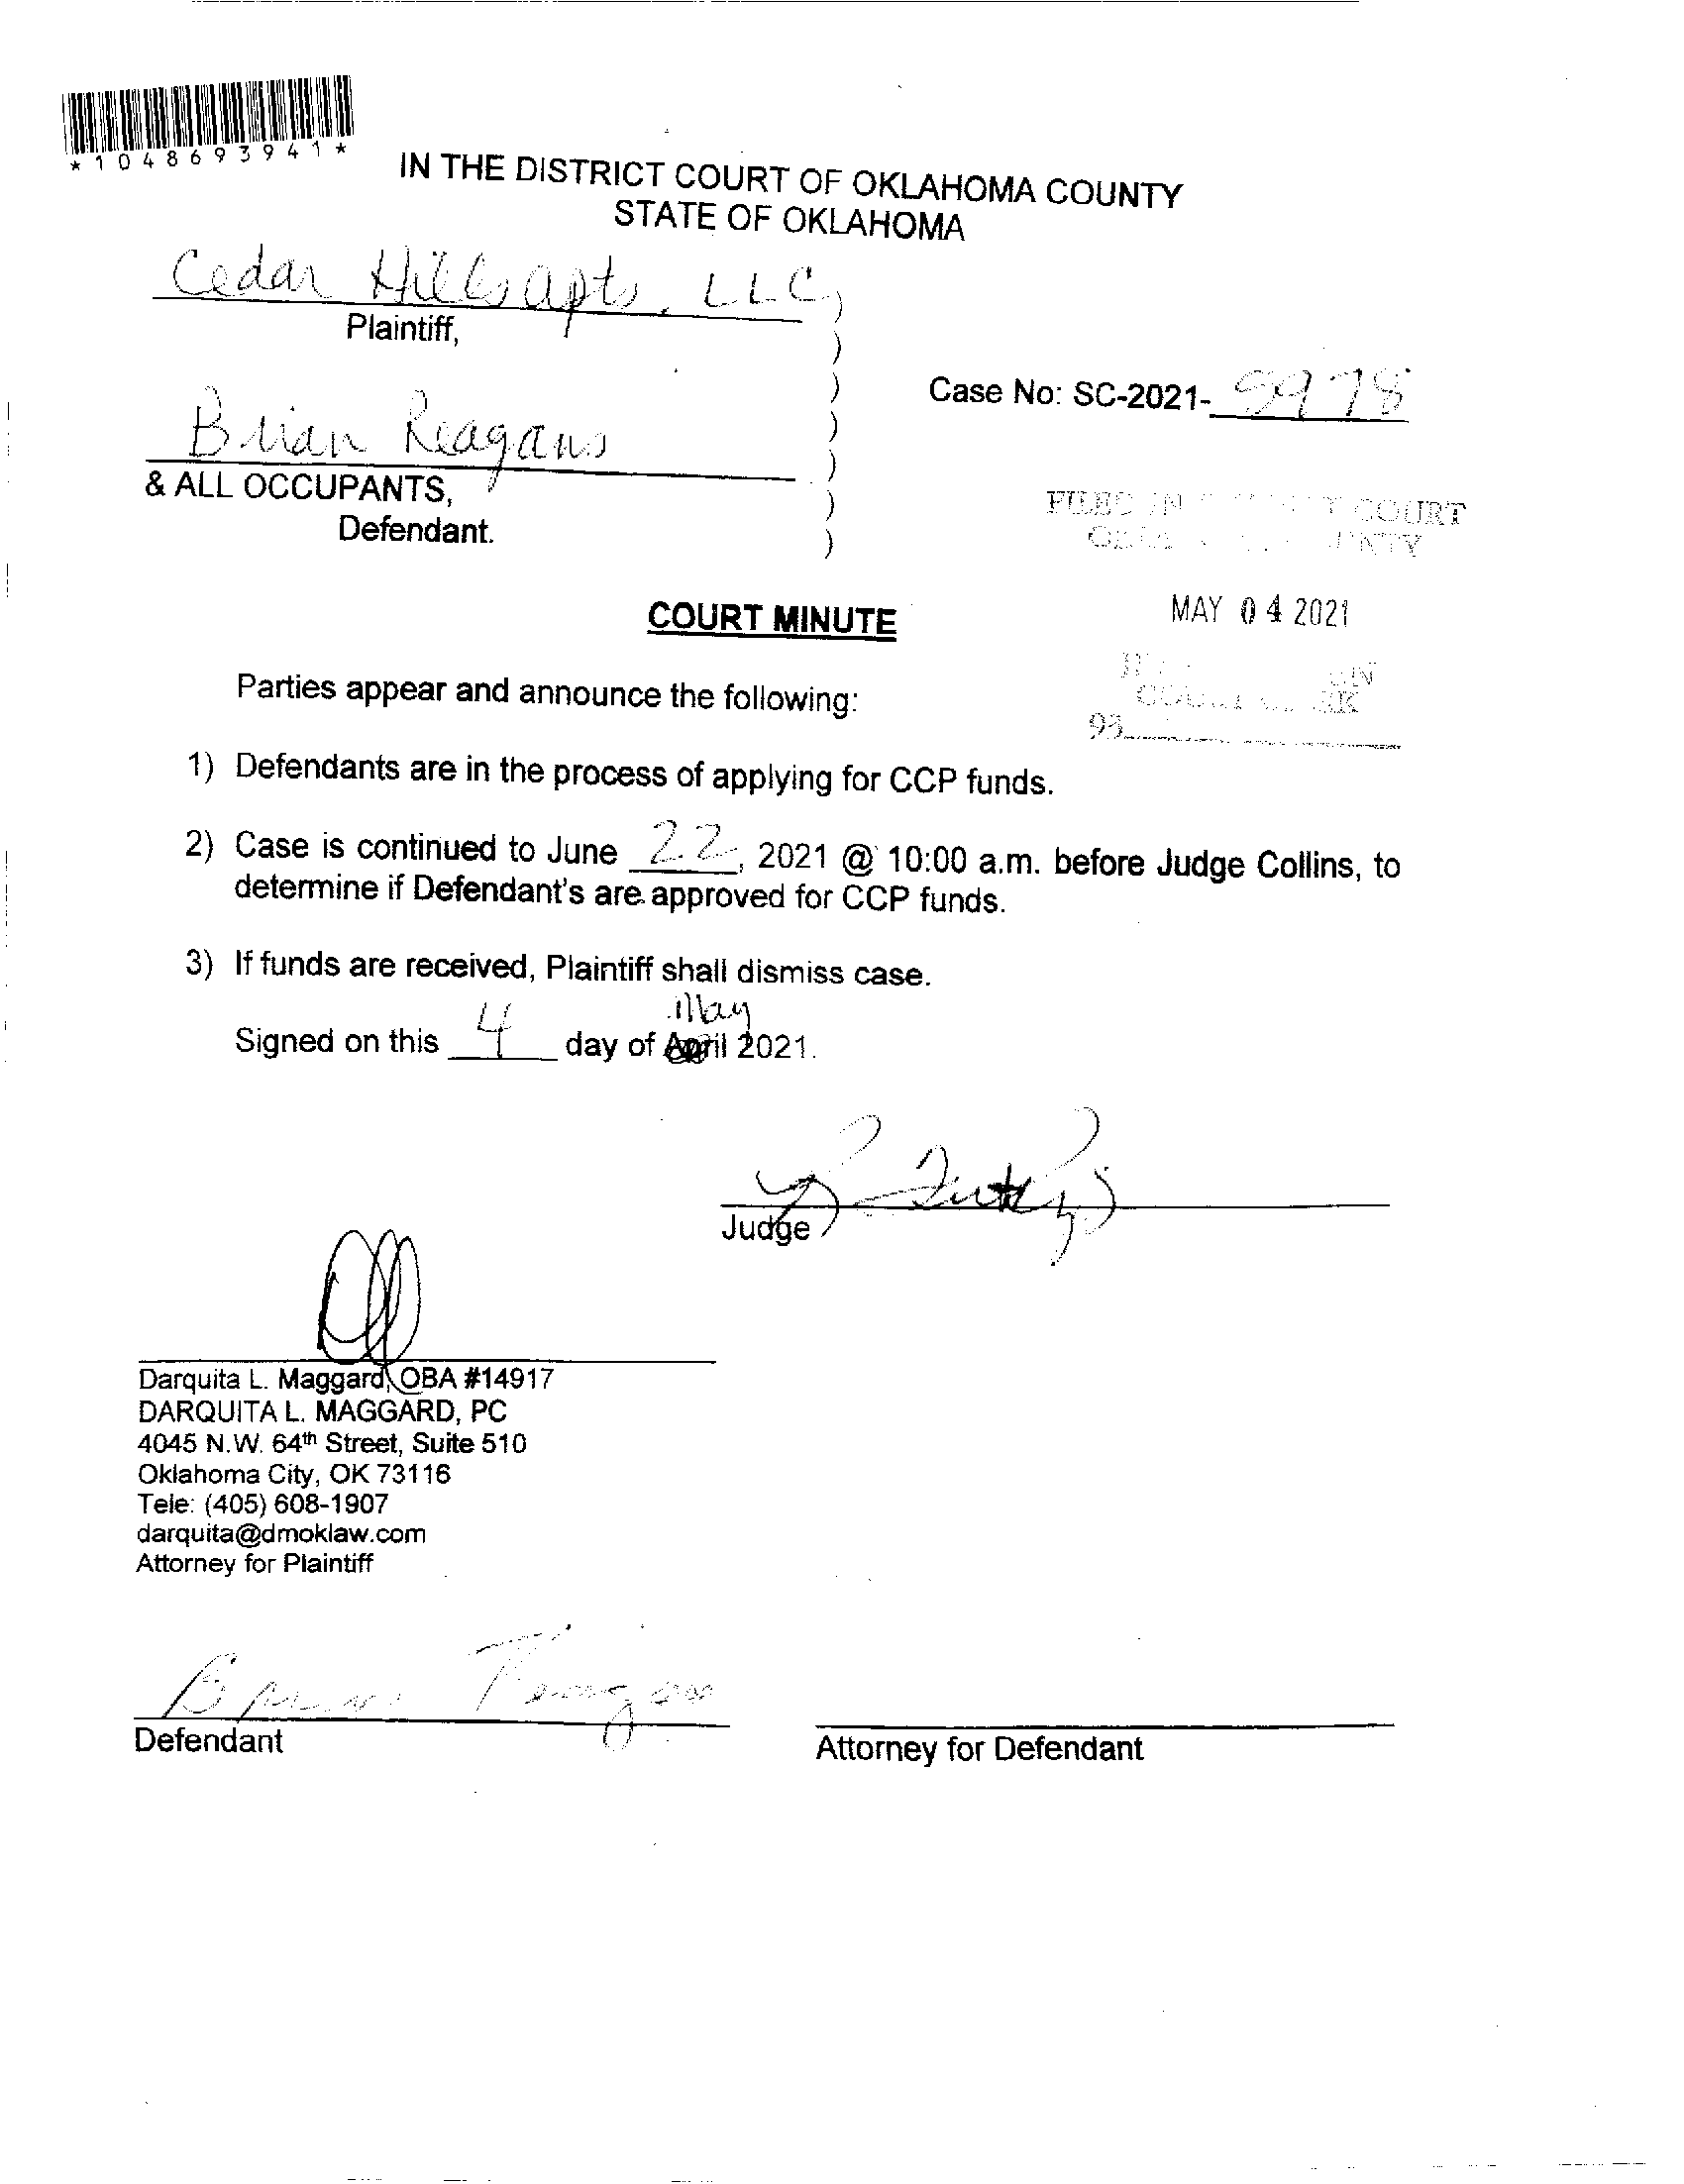 *1048693941*
IN THE DISTRICT COURT OF OKLAHOMA COUNTY
STATE OF OKLAHOMA
Cedar Hills Apts, LLC,)
Plaintiff, )
)
Case No: SC-2021-5978
Brian Reagans )
& ALL OCCUPANTS, )
Defendant. )
FILED IN COURT
MAY 04 2021
COURT MINUTE
93
Parties appear and announce the following:
1) Defendants are in the process of applying for CCP funds.
2) Case is continued to June 22, 2021 @ 10:00 a.m. before Judge Collins, to
determine if Defendant's are approved for CCP funds.
3) If funds are received, Plaintiff shall dismiss case.
May
Signed on this 4 day of April 2021.
Judge
Darquita L. Maggard, OBA #14917
DARQUITA L. MAGGARD, PC
4045 N.W. 64th Street, Suite 510
Oklahoma City, OK 73116
Tele: (405) 608-1907
darquita@dmoklaw.com
Attorney for Plaintiff
Defendant
Attorney for Defendant